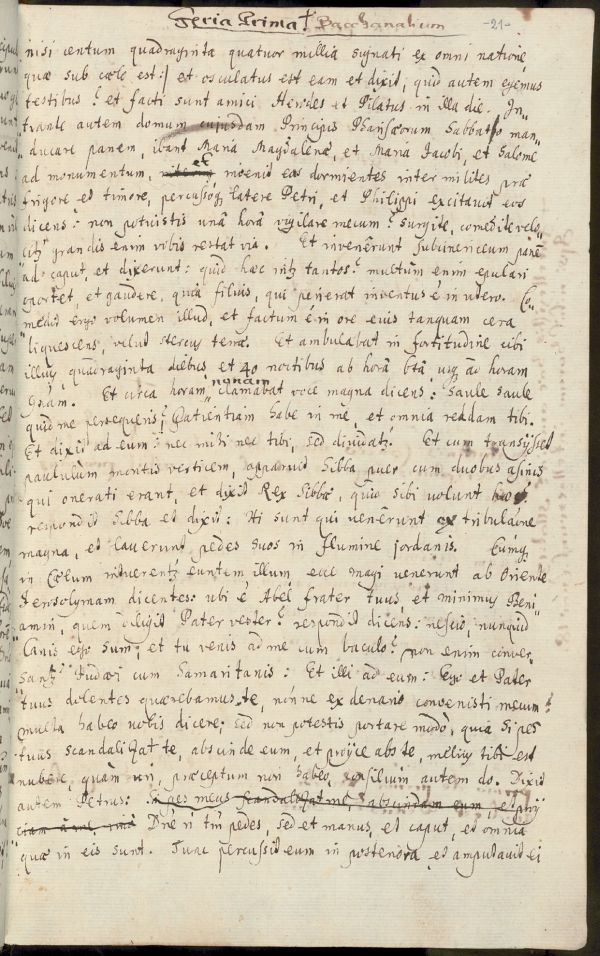 Feria Prima † Bacchanalium -21-
nisi centum quadraginta quatuor millia signati ex omni natione,
quæ sub cœlo est: et osculatus est eam et dixit, quid autem egemus
testibus? et facti sunt amici Herodes et Pilatus in illa die. In„
trante autem domum cujusdam Principis Pharisæorum Sabbatho man„
ducare panem, ibant Maria Magdalenæ, et Maria Jacobi, et Salome
ad monumentum, et invenit eas dormientes inter milites præ
frigore et timore, percussoq latere Petri, et Philippi excitavit eos
dicens: non potuistis unâ horâ vigilare mecum? surgite, comedite velo„
citz grandis enim vobis restat via. Et invenerunt subcinericeum panē
ad caput, et dixerunt: quid hæc intz tantos? multum enim epulari
oportet, et gaudere, quia filius, qui perierat inventus ē in utero. Co„
medit ergo volumen illud, et factum ē in ore eius tanquam cera
liquescens, velud stercus terræ. Et ambulabat in fortitudine cibi
illius, quadraginta diebus et 40 noctibus ab horâ 6tâ usq ad horam
9nam. Et circa horam nonam clamabat voce magna dicens: Saule Saule
quid me persequeris? Patientiam habe in me, et omnia reddam tibi.
Et dixit ad eum: nec mihi nec tibi, sed dividatz. Et cum transijsset
paululum montis verticem, apparuit Sibba puer cum duobus asinis
qui onerati erant, et dixit Rex Sibbæ, quid sibi volunt hæc?
respondit Sibba et dixit: Hi sunt qui venerunt ex tribulaōne
magna, et laverunt pedes suos in flumine jordanis. Cumq
in Cœlum intuerentz euntem illum, ecce magi venerunt ab Oriente
Hierosolymam dicentes: ubi ē Abel frater tuus, et minimus Beni„
amin, quem elegit Pater vester? respondit dicens: nescio, nunquid
Canis ego sum, et tu venis ad me cum baculo? non enim conver„
santz Judæi cum Samaritanis: Et illi ad eum: Ego et Pater
tuus dolentes quærebamus te, nōnne ex denario convenisti mecum?
multa habeo vobis dicere, sed non potestis portare modò, quia si pes
tuus scandalizat te, abscinde eum, et projice abs te, melius tibi est
nubere, quàm uri, præceptum non habeo, consilium autem do. Dixit
autem Petrus: Si pes meus scandalizat me, abscindam eum, et proij
ciam à me, Dnē ñ tm̄ pedes, sed et manus, et caput, et omnia
quæ in eis sunt. Tunc percussit eum in posteriora, et amputavit ei